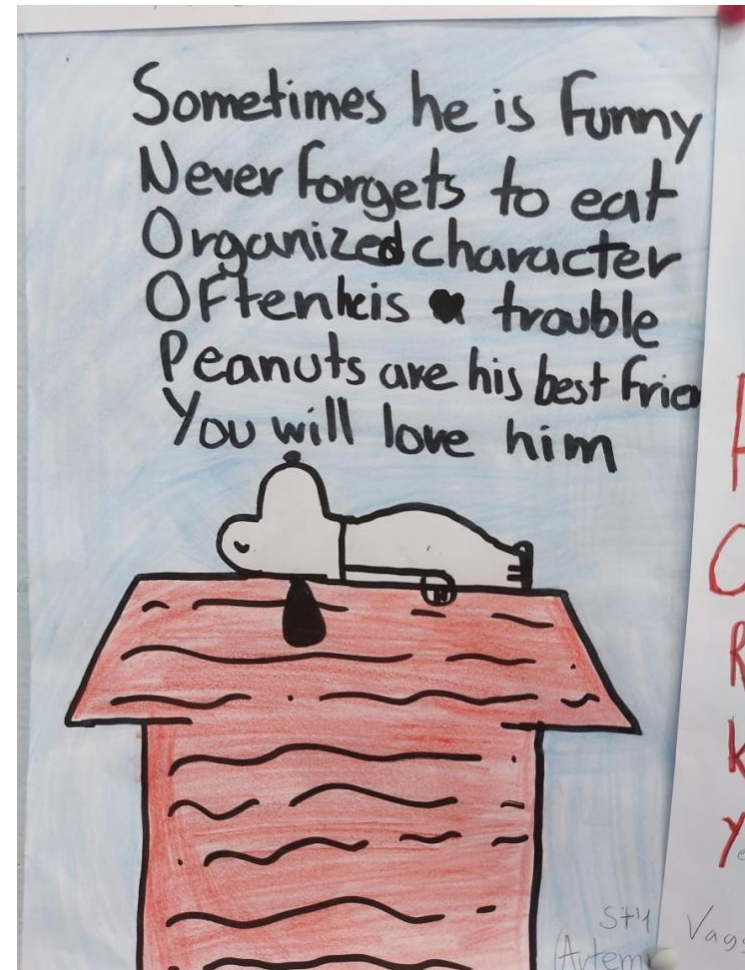 Sometimes he is funny
Never forgets to eat
Organized character
Often he is trouble
Peanuts are his best frien
You will love him
O
R
K
Y
ST'1
Artem
Vag